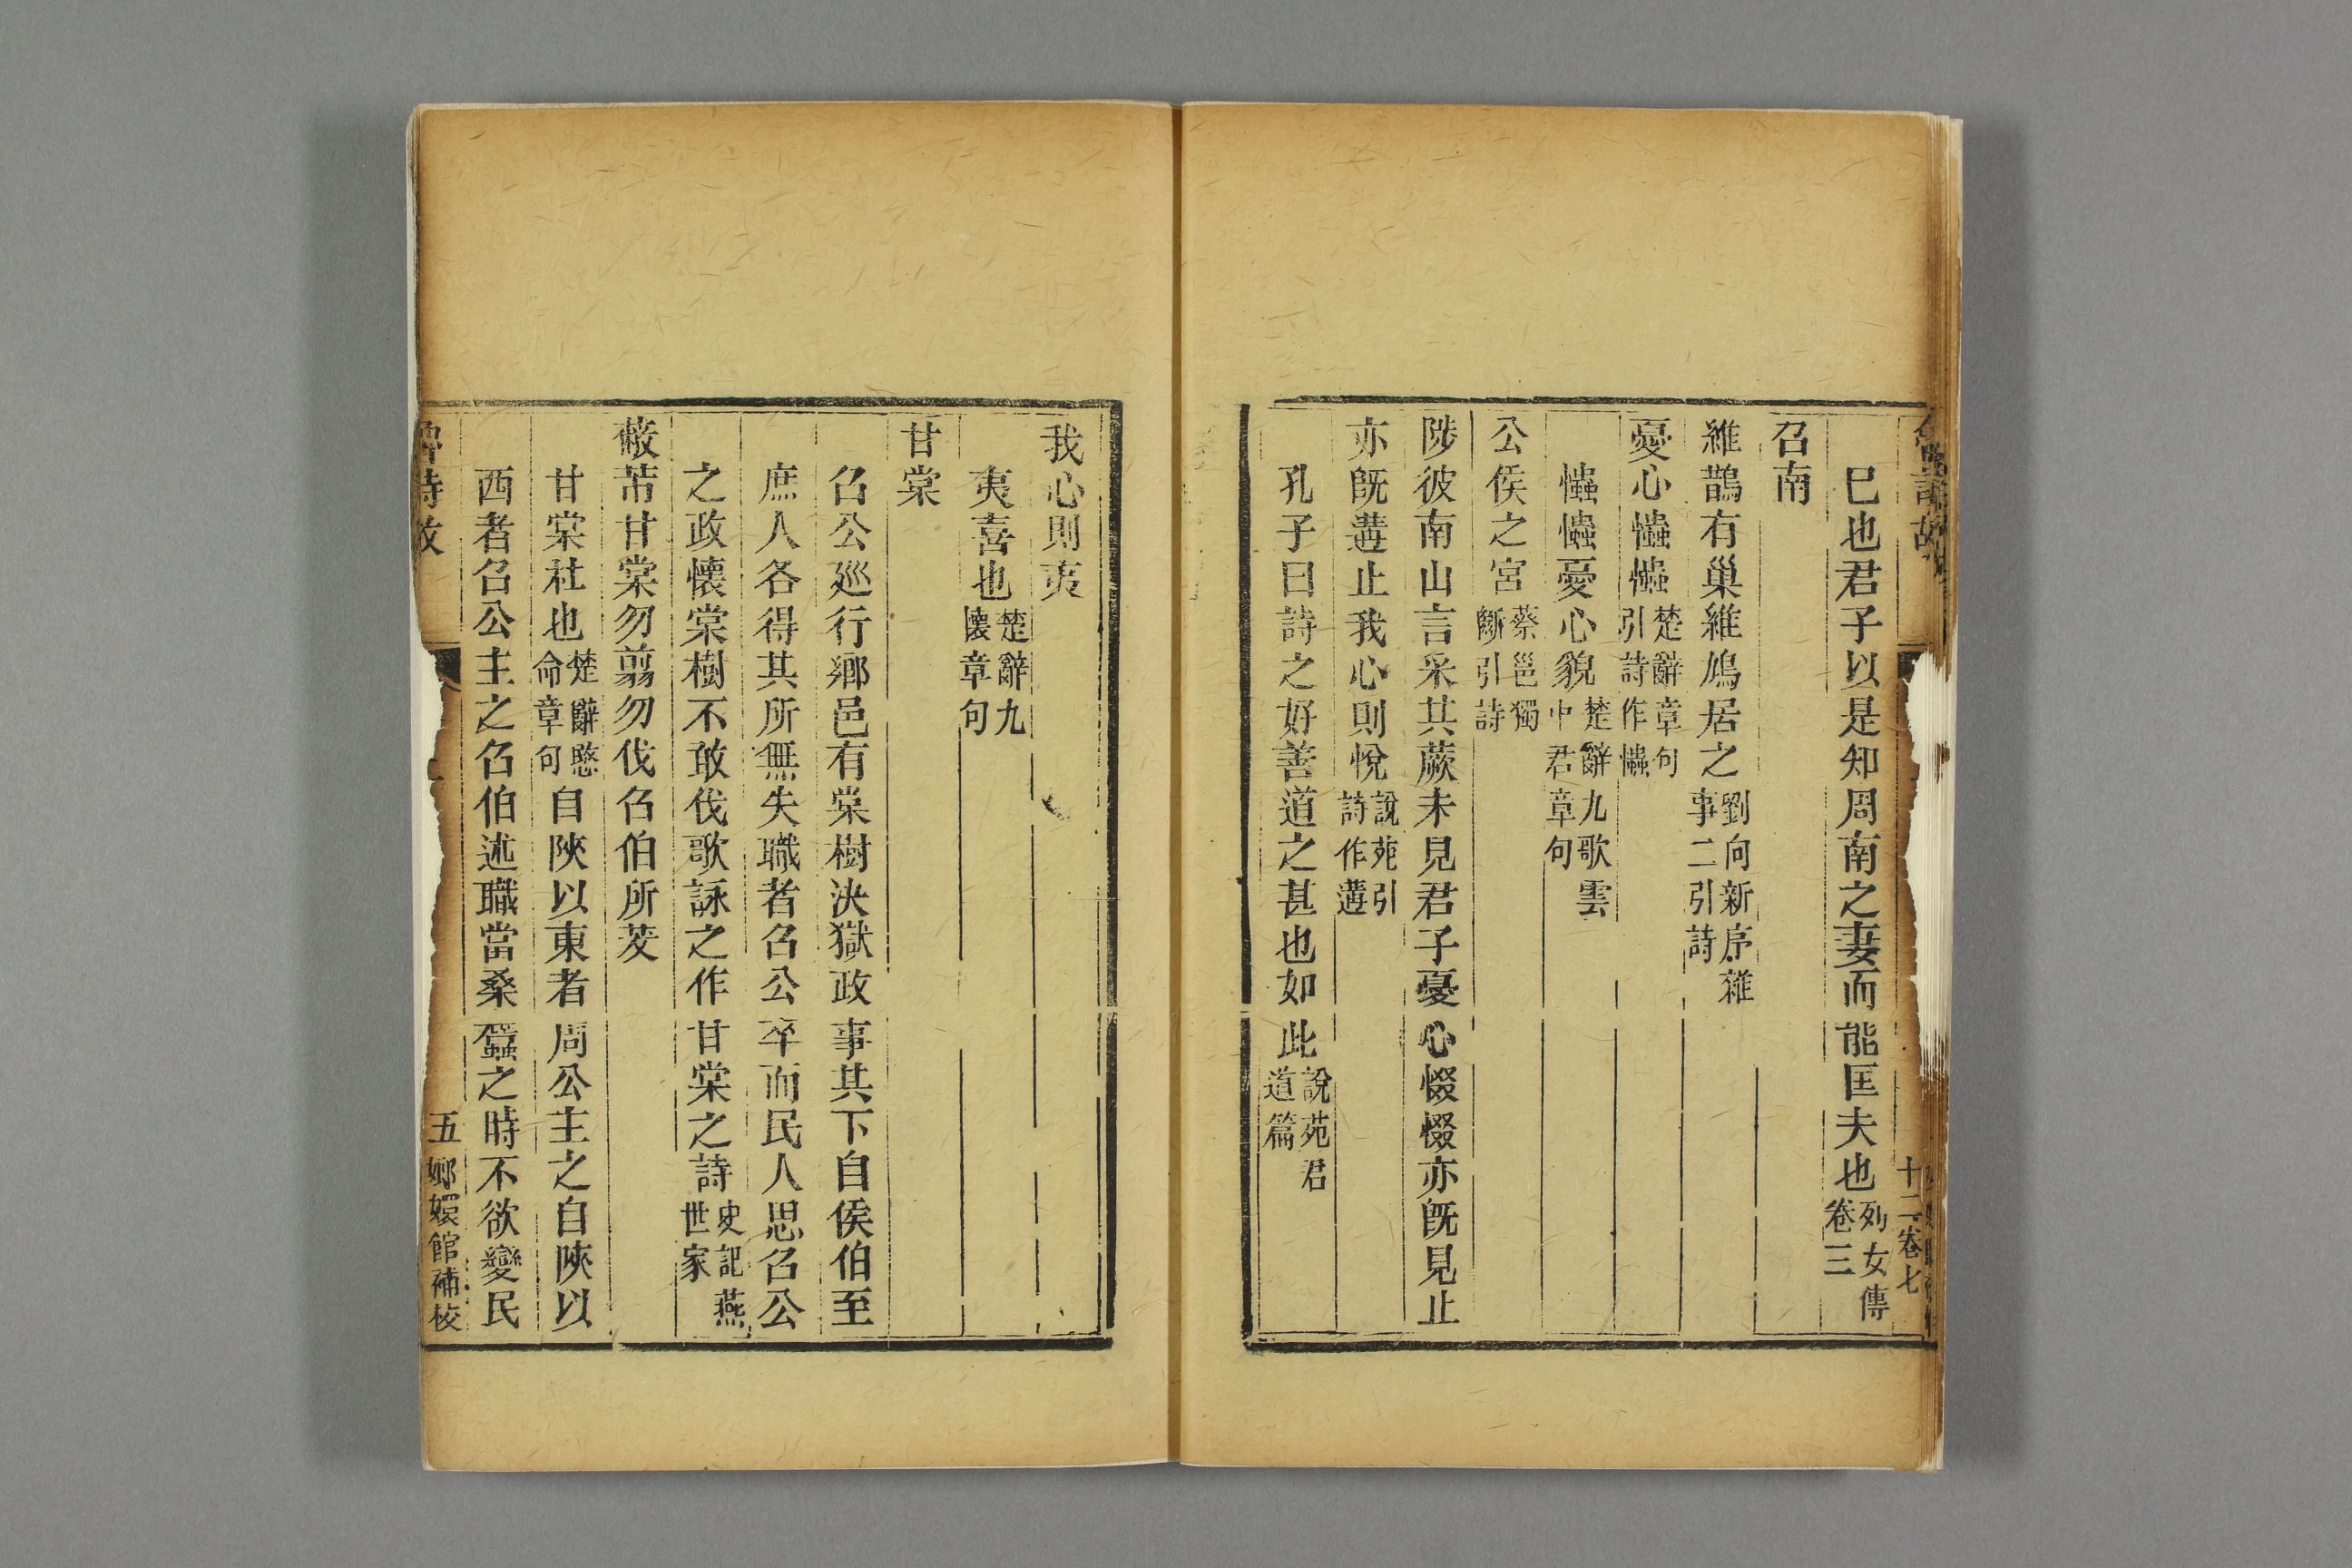 巳也君子以是知周南之妻而能匡夫也列女傳卷三
召南
維鵲有巢維鳩居之劉向新序雜事二引詩
憂心𢥞𢥞楚辭章句引詩作𢥞
𢥞𢥞憂心貌楚辭九歌雲中君章句
公侯之宮蔡邕獨斷引詩
陟彼南山言采其蕨未見君子憂心惙惙亦旣見止
亦旣遘止我心則悅說苑引詩作遘
孔子曰詩之好善道之甚也如此說苑君道篇
我心則夷
夷喜也楚辭九懷章句
甘棠
召公廵行鄉邑有棠樹決獄政事其下自侯伯至
庶人各得其所無失職者召公卒而民人思召公
之政懷棠樹不敢伐歌詠之作甘棠之詩史記燕世家
蔽芾甘棠勿翦勿伐召伯所茇
甘棠社也楚辭愍命章句自陝以東者周公主之自陝以
西者召公主之召伯述職當桑蠶之時不欲變民
魯詩故
五
嫏嬛館補校